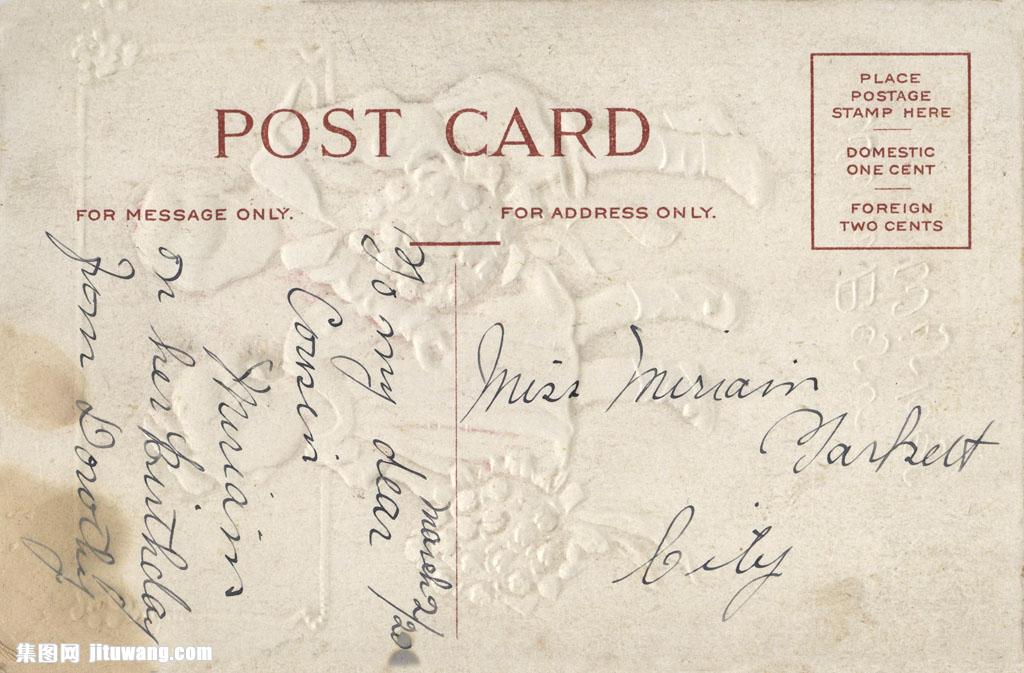 POST CARD
FOR MESSAGE ONLY.
FOR ADDRESS ONLY.
PLACE
POSTAGE
STAMP HERE
DOMESTIC
ONE CENT
FOREIGN
TWO CENTS
March 2/20
To my dear
Cousin
Miriam
on her birthday
from Dorothy
Miss Miriam
City
集图网 jituwang.com